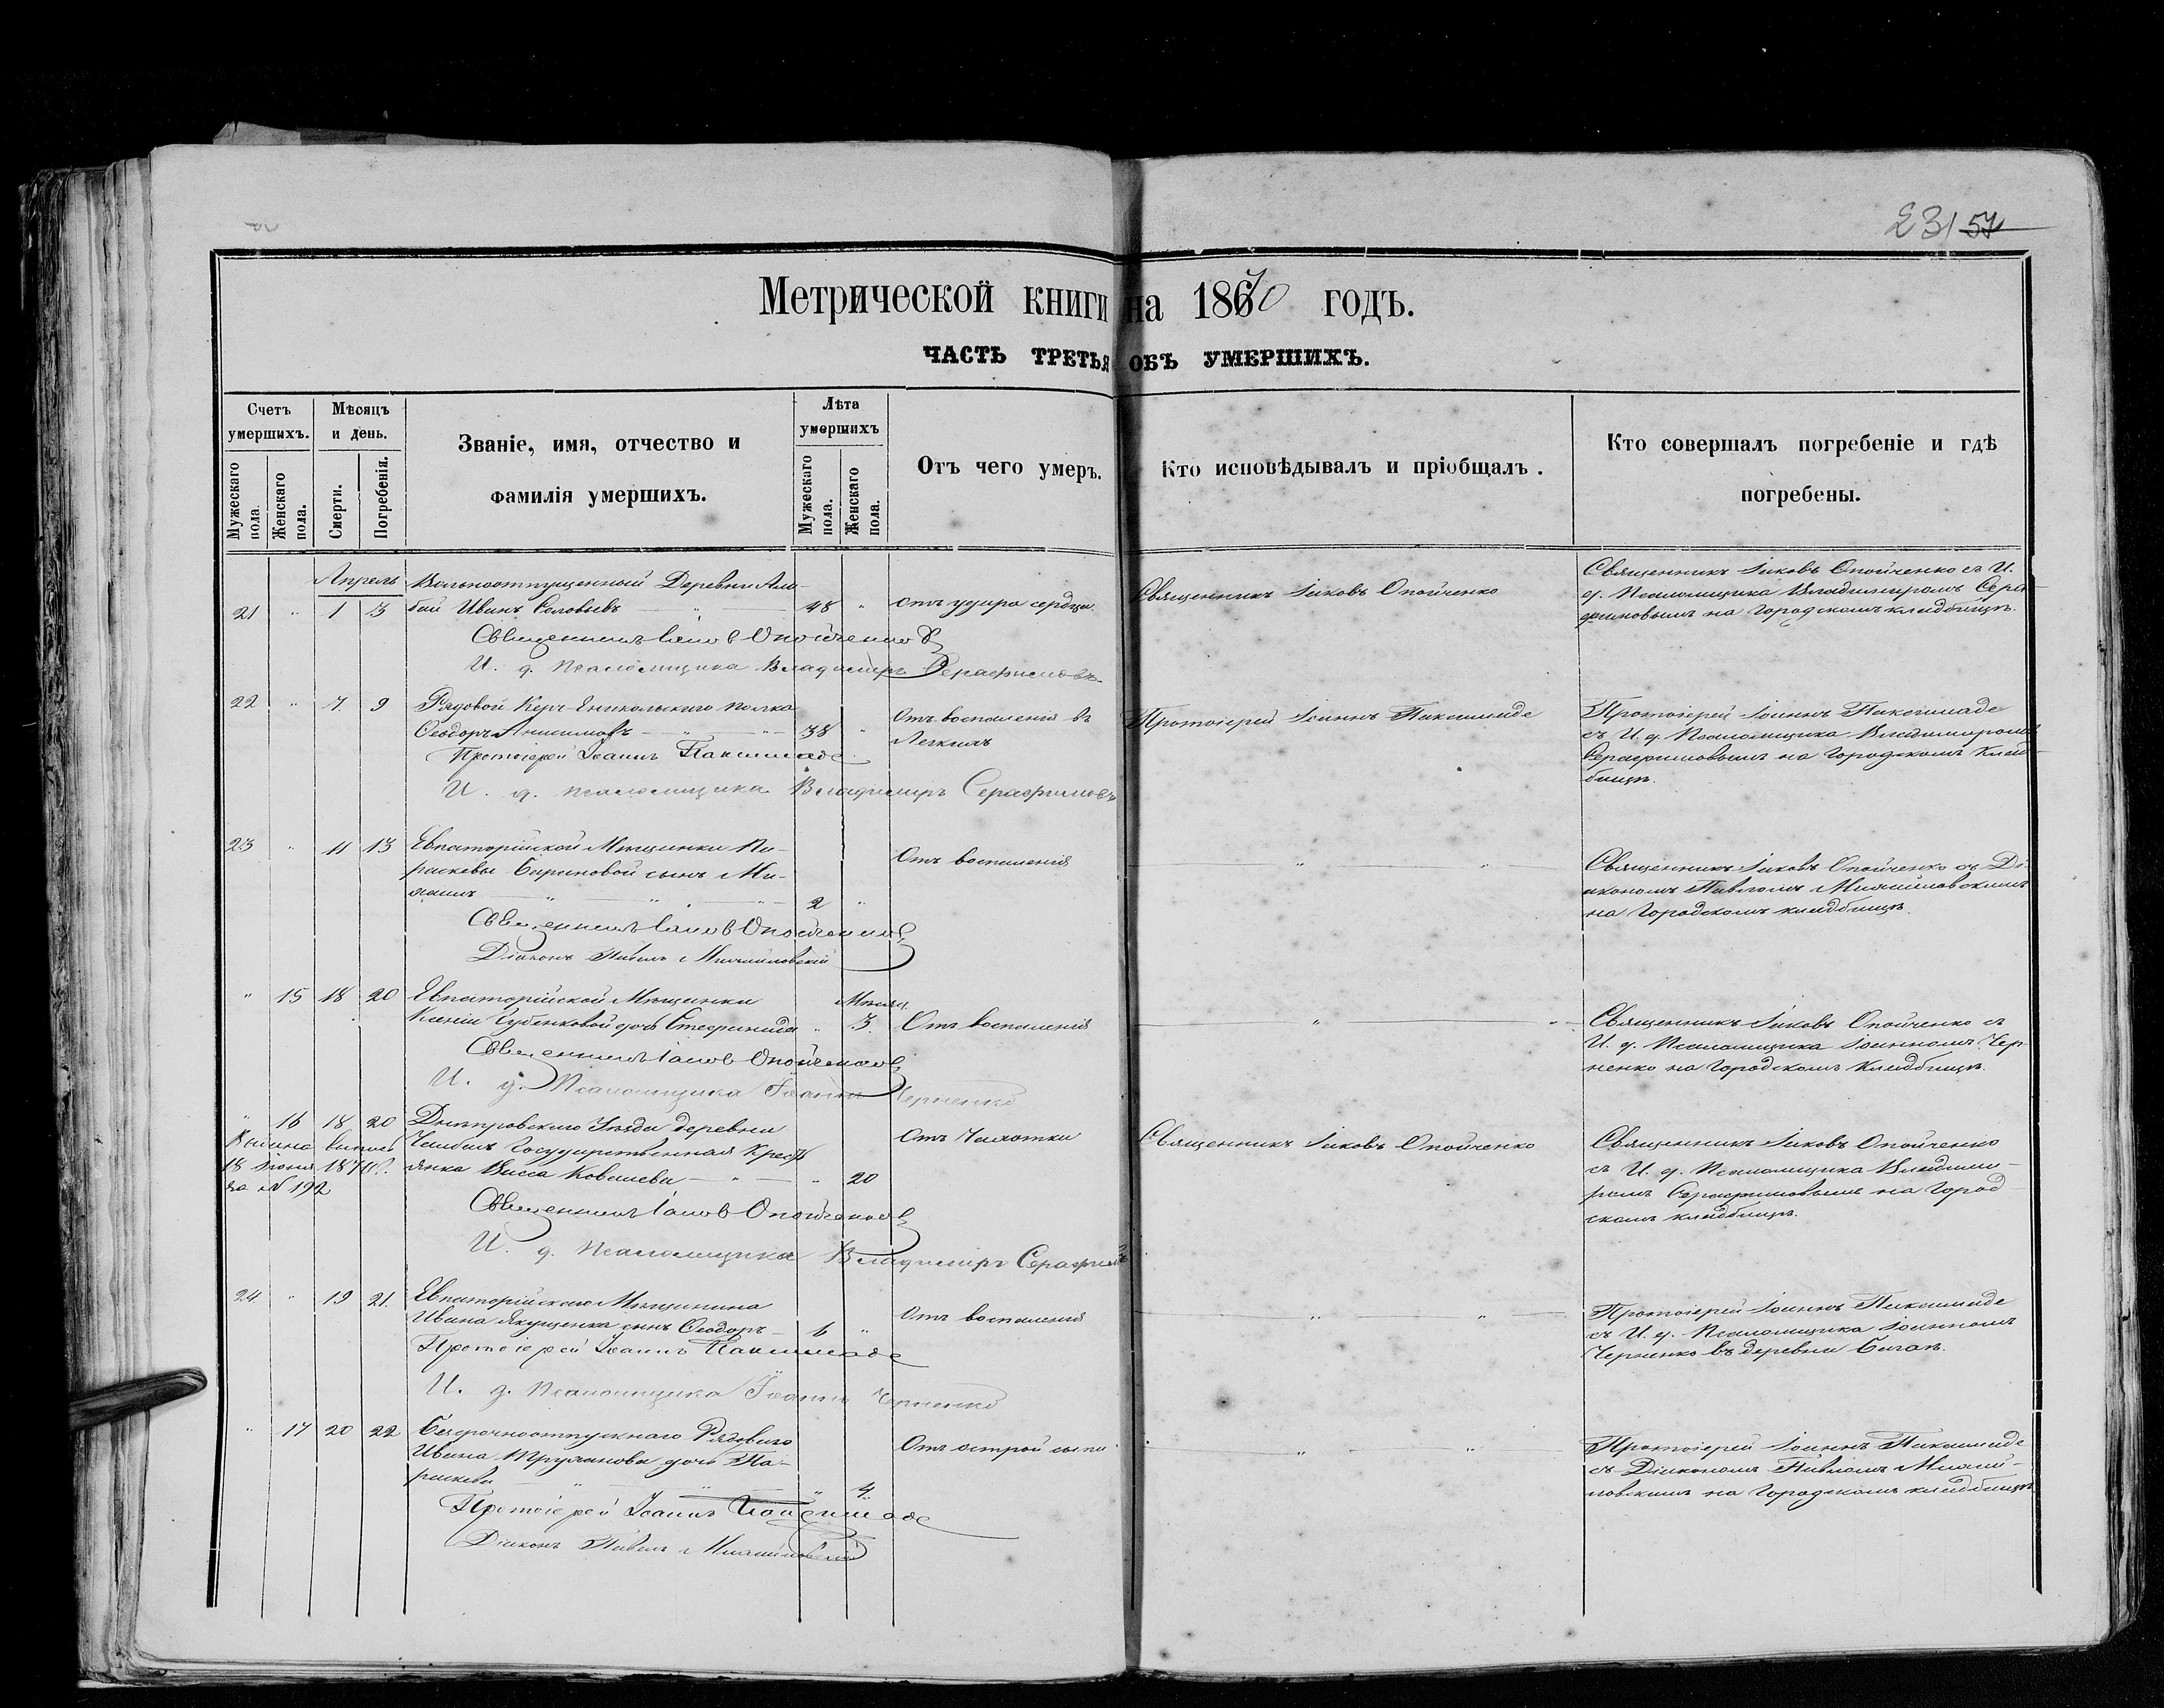 231 57
Метрической книги на 1870 годъ.
ЧАСТЬ ТРЕТЬЯ ОБЪ УМЕРШИХЪ.
Счетъ умершихъ.
Мужескаго пола.
Женскаго пола.
Мѣсяцъ и день.
Смерти.
Погребенія.
Званіе, имя, отчество и
фамилія умершихъ.
Лѣта умершихъ
Мужескаго пола.
Женскаго пола.
Отъ чего умеръ.
Кто исповѣдывалъ и пріобщалъ.
Кто совершалъ погребеніе и гдѣ
погребены.
Апрель
21 " 1 3
Вольноотпущенный Деревни
бай Иванъ Соловьевъ — " — 48 "
отъ удара сердца.
Священникъ Іаковъ Опойченко
Священникъ Іаковъ Опойченко съ И.
д. Псаломщика Владимиромъ Сера
фимовымъ на Городскомъ кладбищѣ.
Священникъ Іаковъ Опойченко
И. д. Псаломщика Владимиръ Серафимовъ
22 " 7 9
Рядовой Керч-Еникольскаго полка
Ѳеодоръ Анисимовъ — " — " — 38 "
Отъ воспаленія въ
Легкихъ
Протоіерей Іоаннъ Пакимаде
Протоіерей Іоаннъ Пакимаде
съ И. д. Псаломщика Владимиромъ
Серафимовымъ на Городскомъ Клад
бищѣ.
Протоіерей Іоаннъ Пакимаде
И. д. псаломщика Владимиръ Серафимовъ
23 " 11 13
Евпаторійской Мѣщанки Па-
раскевы Бариновой сынъ Ми-
хаилъ — " — " — 2 "
Отъ воспаленія
— " — " —
Священникъ Іаковъ Опойченко съ Ді
акономъ Павломъ Михайловскимъ
на Городскомъ кладбищѣ.
Священникъ Іаковъ Опойченко
Діаконъ Павелъ Михайловскій
" 15 18 20
Евпаторійской Мѣщанки
Ксеніи Губенковой дочь Стефанида " 3.
Мѣсяц.
Отъ воспаленія
— " — " —
Священникъ Іаковъ Опойченко съ
И. д. Псаломщика Іоанномъ Чер
ненко на Городскомъ Кладбищѣ.
Священникъ Іаковъ Опойченко
И. д. Псаломщика Іоаннъ Черненко
" 16 18 20
18 Іюня
за № 192
Днѣпровскаго Уѣзда деревни
Государственная Крест
янка Васса Ковалева — " — " 20
Отъ Чахотки
Священникъ Іаковъ Опойченко
Священникъ Іаковъ Опойченко
съ И. д. Псаломщика Владими-
ромъ Серафимовымъ на Город
скомъ кладбищѣ.
Священникъ Іаковъ Опойченко
И. д. Псаломщика Владимиръ Серафимовъ
24. " 19 21.
Евпаторійскаго Мѣщанина
Ивана Якущенка сынъ Ѳеодоръ — 6 "
Отъ воспаленія
— " — " —
Протоіерей Іоаннъ Пакимаде
съ И. д. Псаломщика Іоанномъ
Черненко въ деревни Богай.
Протоіерей Іоаннъ Пакимаде
И. д. Псаломщика Іоаннъ Черненко
" 17 20 22
Безсрочноотпускнаго Рядоваго
Ивана Труханова дочь Па-
раскева — " — " 4.
Отъ острой сыпи
— " — " —
Протоіерей Іоаннъ Пакимаде
съ Діакономъ Павломъ Михай-
ловскимъ на Городскомъ кладбищѣ
Протоіерей Іоаннъ Пакимаде
Діаконъ Павелъ Михайловскій